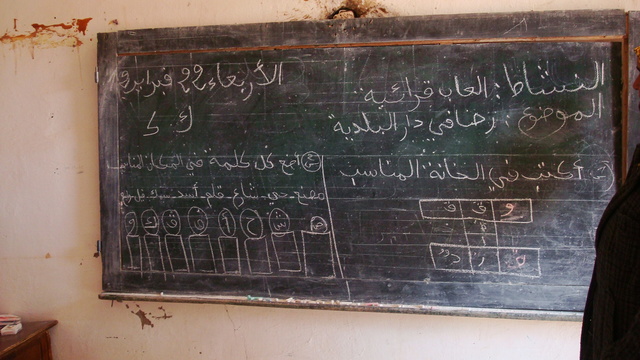 الأربعاء 22 فبراير
النشاط : العاب قرائية
الموضوع : رضا في دار البلدية
أكتب في الخانة المناسب
أضع كل كلمة في المكان المناسب
مصنع - حي - شارع - قلم - أسد
ش ح أ ق
و